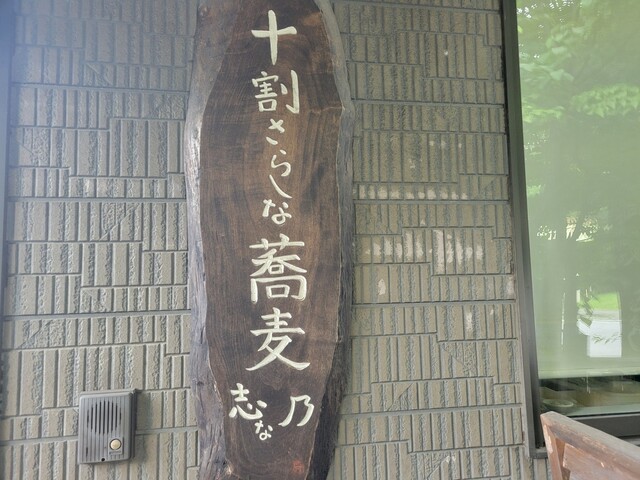 十割さらしな蕎麦
志な乃